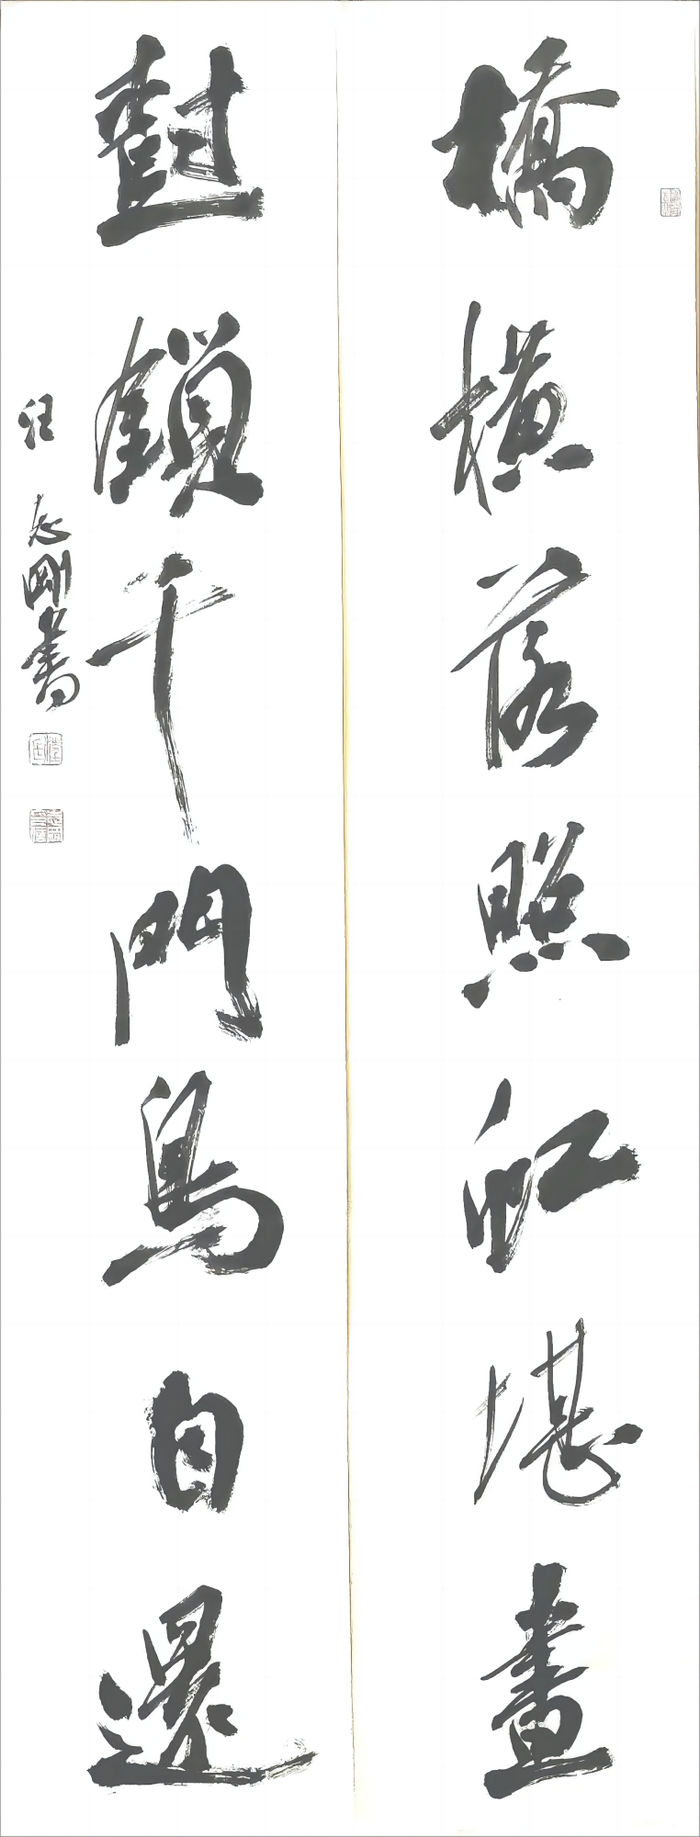 橋橫落照虹堪畫
樹鎖千門鳥自還
任志剛書